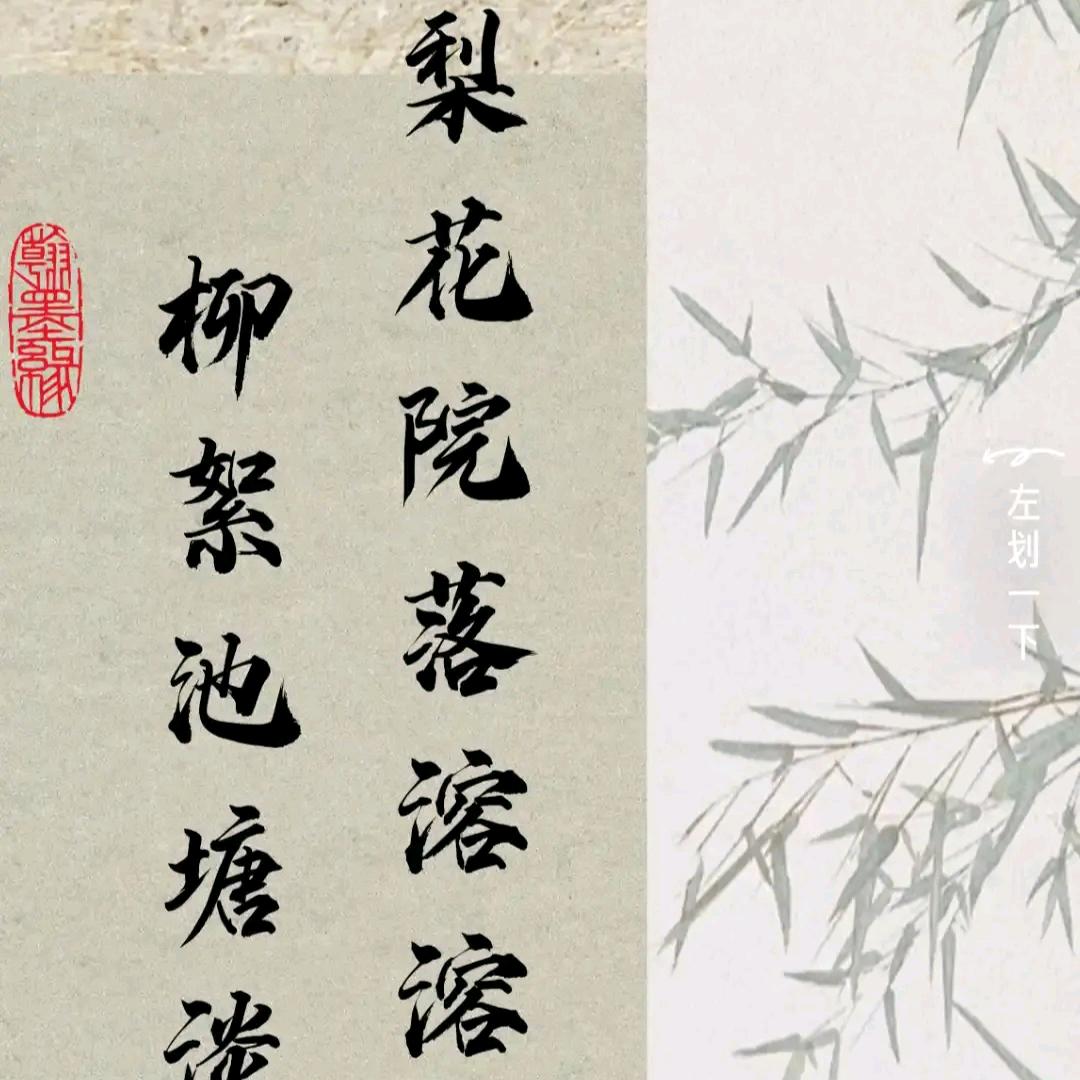 梨花院落溶溶
柳絮池塘淡
翰墨缘
左划一下